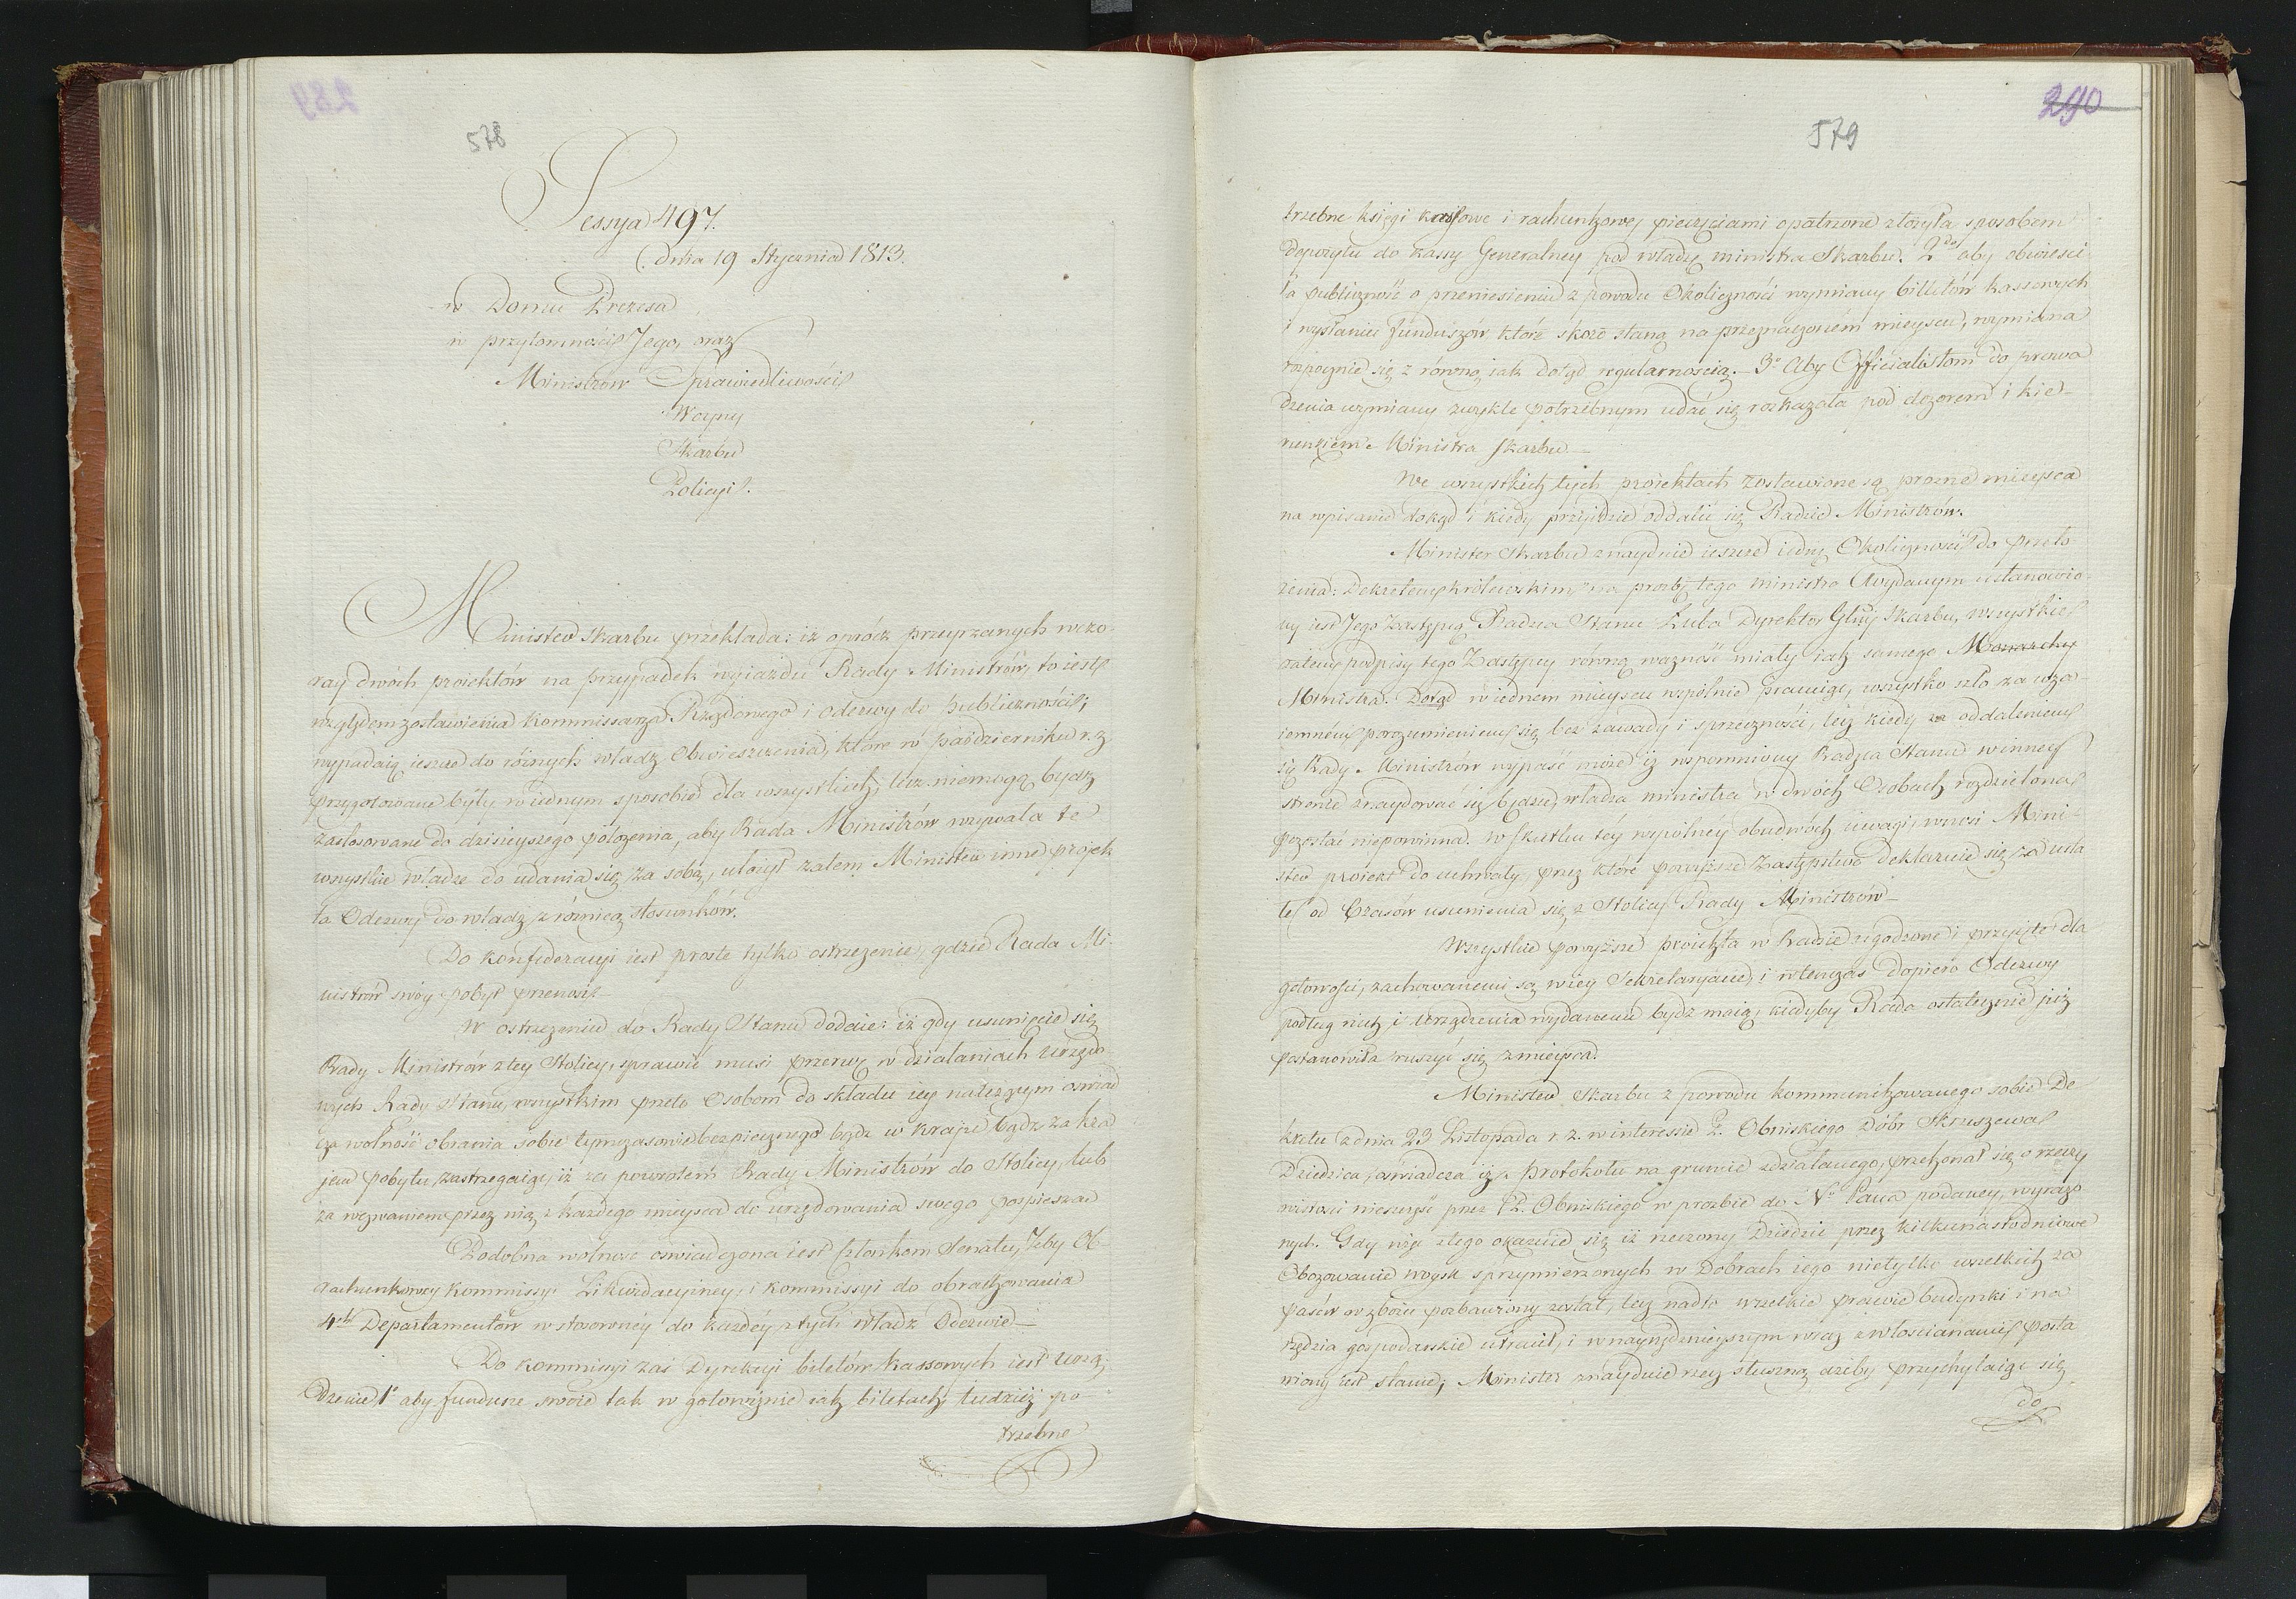 289
578
Sessya 497.
Dnia 19 Stycznia 1813.
w Domu Prezesa
w przytomności Jego, oraz
Ministrów Sprawiedliwości
Woyny
Skarbu
Policyi.
Minister Skarbu przekłada: iż oprócz przeyrzanych wczo-
ray dwóch proiektów na przypadek wyiazdu Rady Ministrów, to iest
względem zostawienia Kommissarza Rządowego i odezwy do Publiczności,
wypadaią ieszcze do różnych władz Obwieszczenia, które w październiku r. z.
przygotowane były w iednym sposobie dla wszystkich, lecz niemogą bydz
zastosowane do dzisieyszego położenia, aby Rada Ministrów wzywała te
wszystkie władze do udania się za sobą, ułożył zatem Minister inne projek
ta Odezwy do władz z różnicą stosunków.
Do Konfederacyi iest proste tylko ostrzeżenie, gdzie Rada Mi-
nistrów swóy pobyt przenosi
W ostrzeżeniu do Rady Stanu dodaie: iż gdy usunięcie się
Rady Ministrów z tey Stolicy, sprawić musi przerwę w działaniach urzędo
wych Rady Stanu, wszystkim przeto Osobom do składu iey należącym oświad
cza wolność obrania sobie tymczasowie bezpiecznego bądź w kraju bądź za kra
jem pobytu, zastrzegaiąc, iż za powrotem Rady Ministrów do Stolicy, lub
za wezwaniem przez nią z każdego mieysca do urzędowania swego pospieszać
Podobna wolność oświadczona iest Członkom Senatu, Izby Ob-
rachunkowey Kommissyi Likwidacyiney, i Kommissyi do obrachowania
4ch Departamentów w stosowney do każdéy z tych władz Odezwie
Do Kommissyi zaś Dyrekcyi biletów Kassowych iest urzą
dzenie, 1o aby fundusze swoie tak w gotowiźnie iak biletach, tudzież po
trzebne
290
579
trzebne księgi kassowe i rachunkowe, pieczęciami opatrzone złożyła sposobem
Depozytu do Kassy Generalney pod władzę ministra Skarbu. 2do aby obwieści
ła publiczność o przeniesieniu z powodu Okoliczności wymiany billetów kassowych
i wysłaniu funduszów, które skoro staną na przeznaczoném mieyscu, wymiana
rozpocznie się z równą iak dotąd regularnością. 3o Aby Officialistom do prowa
dzenia wymiany zwykle potrzebnym udać się rozkazała pod dozorem i kie-
runkiem Ministra Skarbu
We wszystkich tych proiektach zostawione są prózne mieysca
na wpisanie dokąd i kiedy przyidzie oddalić się Radzie Ministrów.
Minister Skarbu znayduie ieszcze iedną Okoliczność do przeło
żenia: Dekretem królewskim na prozbę tego ministra wydanym ustanowio
ny iest Jego Zastępcą Radca Stanu Łuba Dyrektor Głny Skarbu, wszystkie
zatem podpisy tego Zastępcy równą ważność miały iak samego Monarchy
Ministra. Dotąd w iednem mieyscu wspólnie pracuiąc, wszystko szło za wza-
iemném porozumieniem się bez zawady i sprzeczności, lecz kiedy za oddaleniem
się Rady Ministrów wypaść może iż wspomniony Radca Stanu w inney
stronie znaydować się będzie, władza ministra w dwóch Osobach rozdzielona
pozostać niepowinna. W skutku téy wspólney obudwóch uwagi, wnosi Mini-
ster proiekt do uchwały, przez które powyższe Zastępstwo deklaruie się za usta
łe od Czasów usunienia się z Stolicy Rady Ministrów
Wszystkie powyższe proiekta w Radzie zgodzone i przyięte dla
gotowości, zachowanemi są w iey Sekretaryacie, i wtenczas dopiero Odezwy
podług nich i urządzenia wydawane bydz maią, kiedyby Rada ostatecznie już
postanowiła ruszyć się z mieysca.
Minister Skarbu z powodu kommunikowanego sobie De
kretu z dnia 23 Listopada r. z. w interessie P. Obniskiego Dóbr Skruszewa
Dziedzica, oświadcza iż z protokołu na gruncie zdziałanego, przekonał się o rzeczy
wistości nieszczęść przez P. Obniskiego w prozbie do No Pana podaney, wyrażo
nych. Gdy więc z tego okazuie się iż rzeczony Dziedzic przez kilkunastodniowe
Obozowanie woysk sprzymierzonych w Dobrach iego nietylko wszelkich za
pasów w zbożu pozbawiony został, lecz nadto wszelkie prawie budynki i na
rzędzia gospodarskie utracił, i w naynędznieyszym wraz z włościanami posta
wiony iest stanie; Minister znayduie rzecz słuszną ażeby przychylaiąc się
do